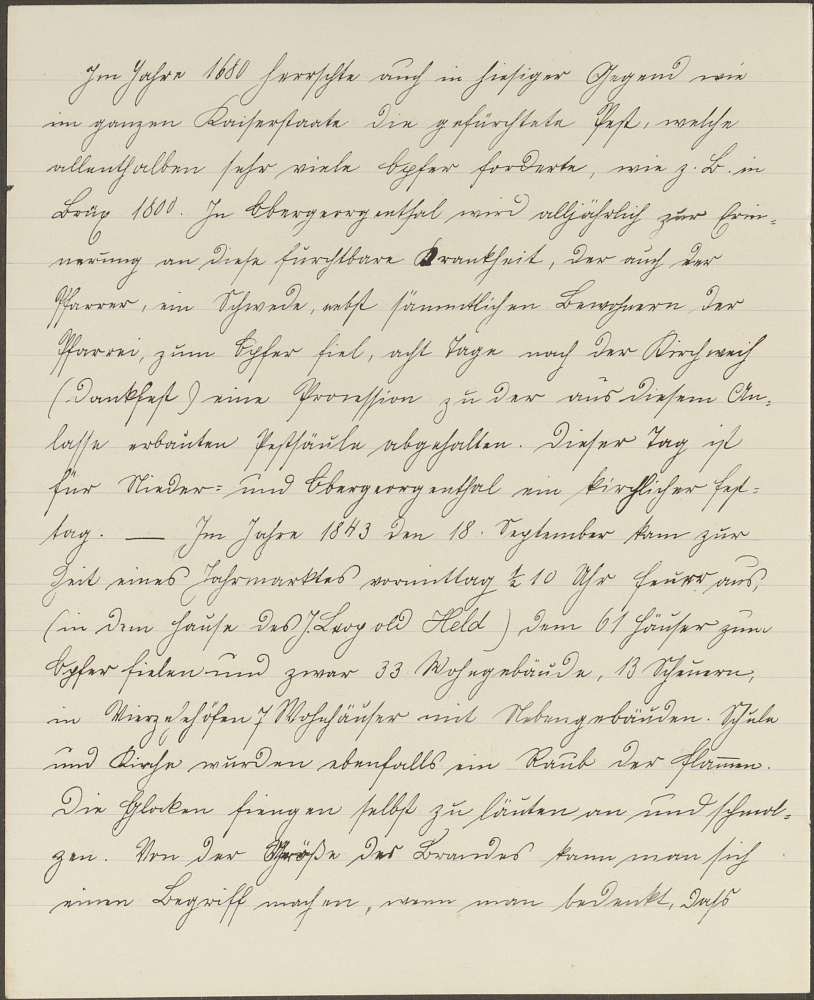 Im Jahre 1680 herrschte auch in hiesiger Gegend wie
im ganzen Kaiserstaate die gefürchtete Pest, welche
allenthalben sehr viele Opfer forderte, wie z. B. in
Brüx 1800. In Obergeorgenthal wird alljährlich zur Erin-
nerung an diese furchtbare Krankheit, der auch der
Pfarrer, ein Schwede, nebst sämmtlichen Bewohnern der
Pfarrei, zum Opfer fiel, acht Tage nach der Kirchweih
(Dankfest) eine Procession zu der aus diesem An-
lasse erbauten Pestsäule abgehalten. Dieser Tag ist
für Nieder- und Obergeorgenthal ein kirchlicher Fest-
tag. — Im Jahre 1843 den 18. September kam zur
Zeit eines Jahrmarktes vormittag ½ 10 Uhr Feuer aus,
(in dem Hause des J. Leopold Held) dem 61 Häuser zum
Opfer fielen und zwar 33 Wohngebäude, 13 Scheuern,
in Vierzehöfen 7 Wohnhäuser mit Nebengebäuden. Schule
und Kirche wurden ebenfalls ein Raub der Flam̅en.
Die Glocken fiengen selbst zu läuten an und schmol-
zen. Von der Größe des Brandes kann man sich
einen Begriff machen, wenn man bedenkt, dass